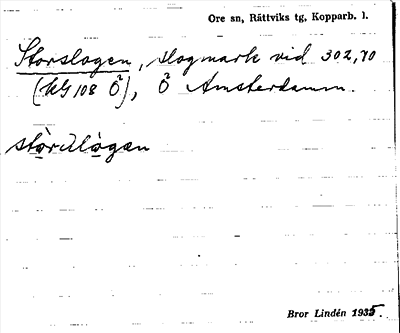 Ore sn, Rättviks tg, Kopparb. l.
Storslogen, slogmark vid 302,70
(UG 108 Ö), Ö Amsterdamm.
stòrslògen
Bror Lindén 1935.